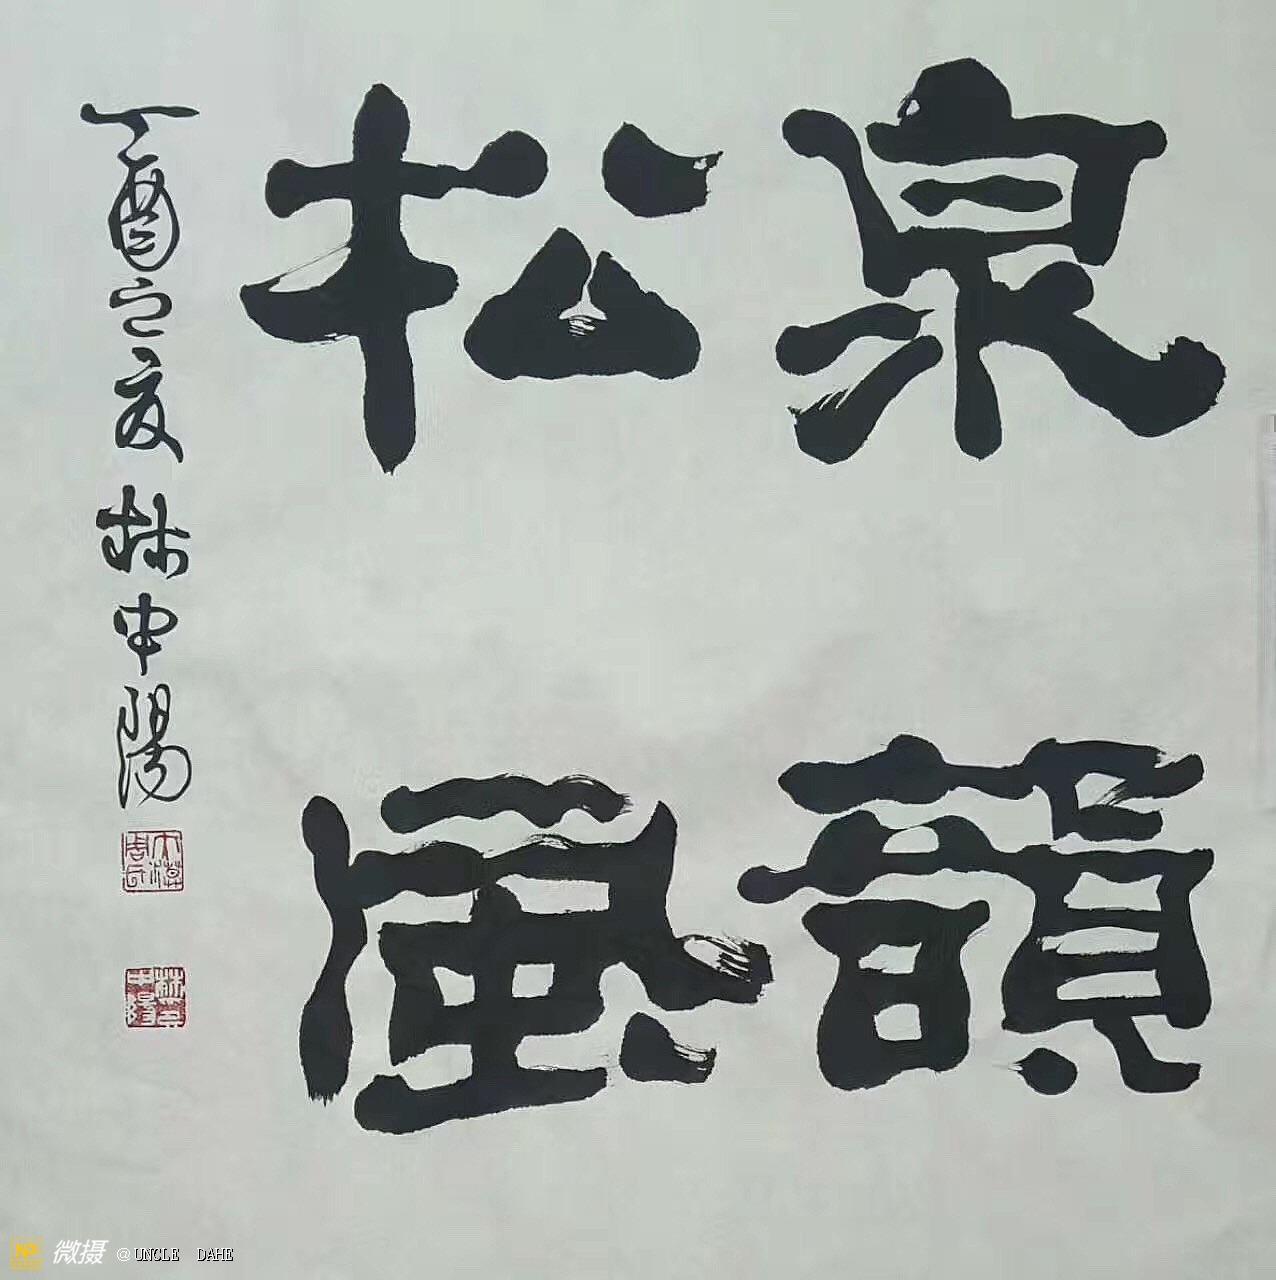 泉韻
松風
丁酉之夏林中陽
微摄 @UNCLE DAHE